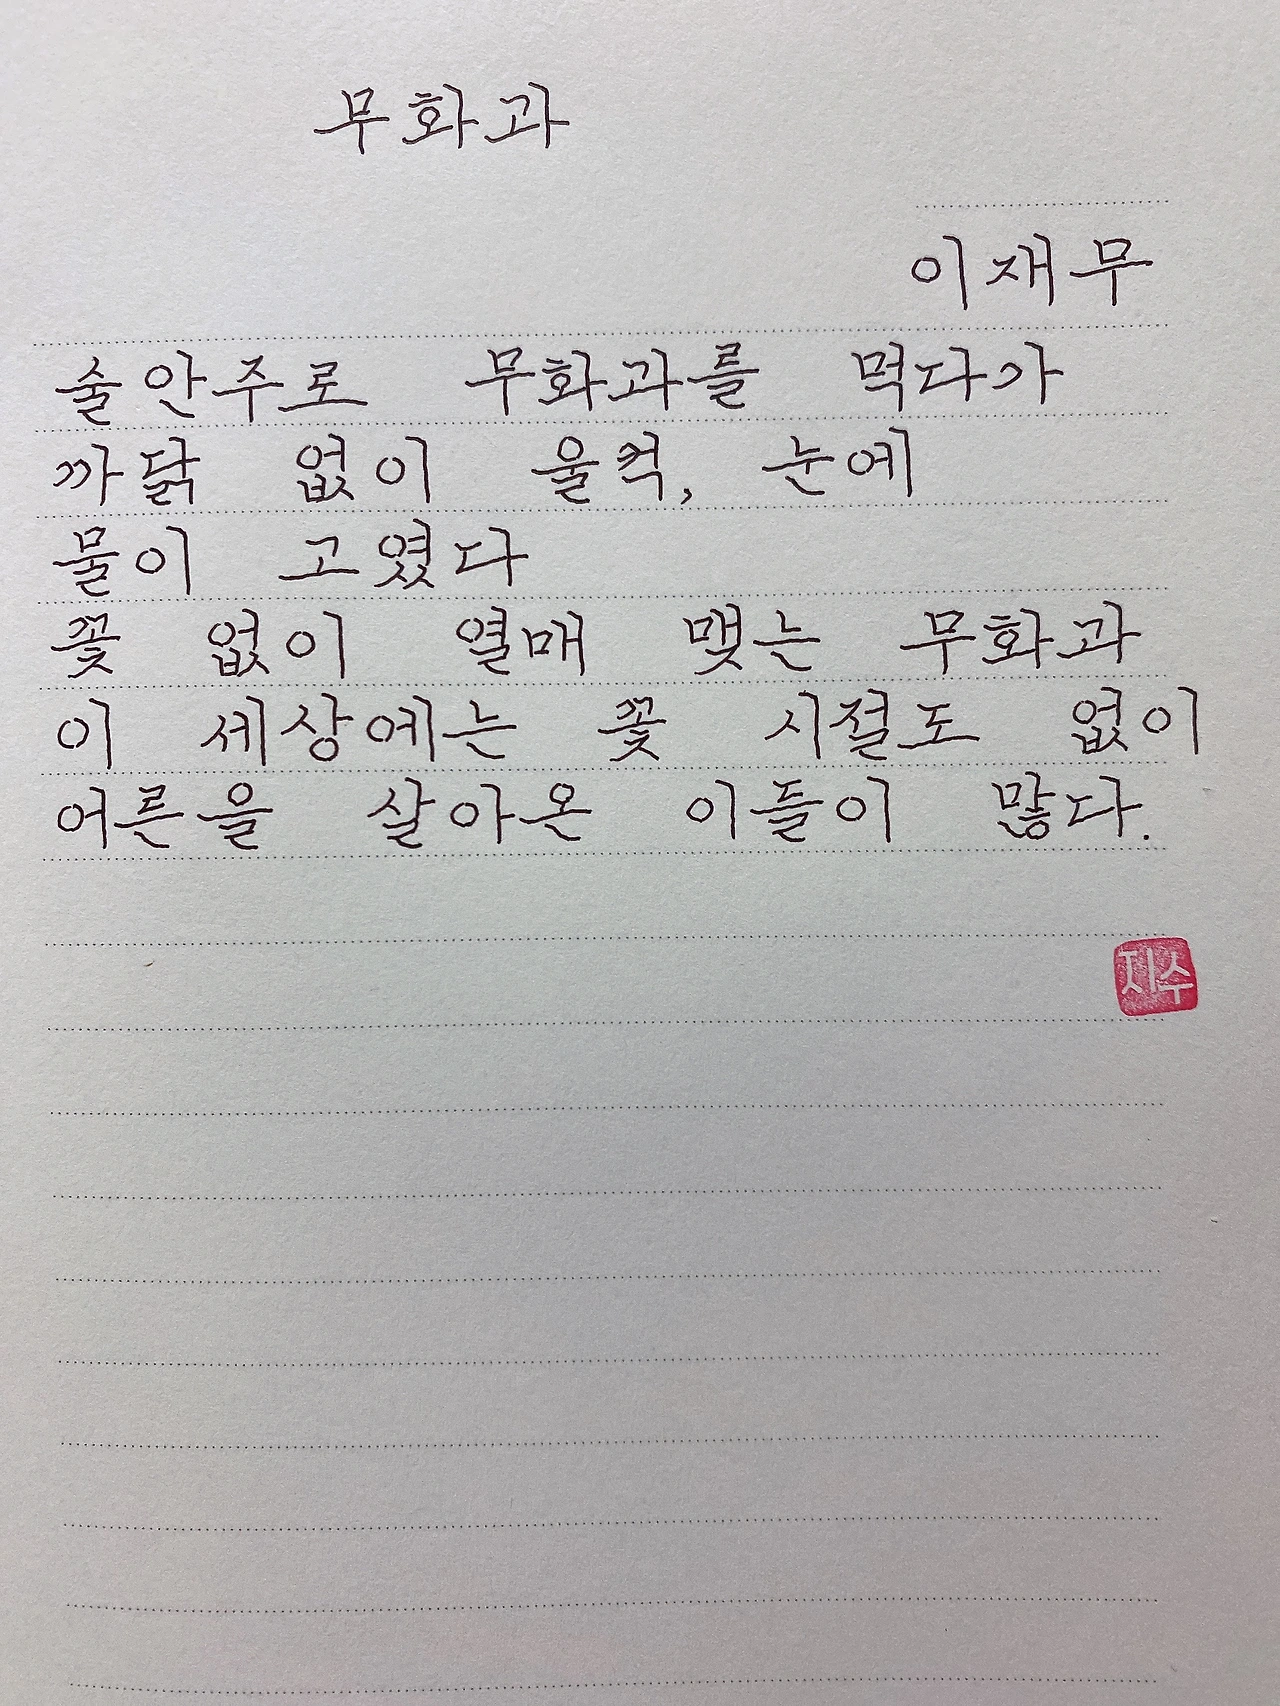 무화과
이재무
술안주로 무화과를 먹다가
까닭 없이 울컥, 눈에
물이 고였다
꽃 없이 열매 맺는 무화과
이 세상에는 꽃 시절도 없이
어른을 살아온 이들이 많다.
지수